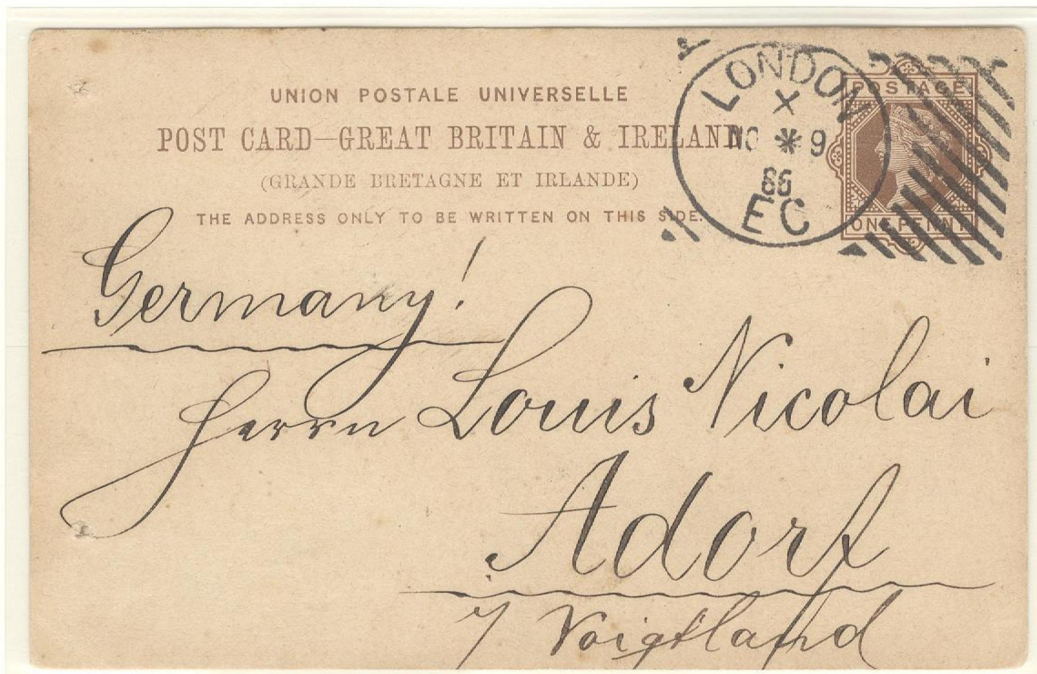 UNION POSTALE UNIVERSELLE
POST CARD—GREAT BRITAIN & IRELAND
(GRANDE BRETAGNE ET IRLANDE)
THE ADDRESS ONLY TO BE WRITTEN ON THIS SIDE.
LONDON
X
NO 9
86
EC
POSTAGE
ONE PENNY
Germany!
Herrn Louis Nicolai
Adorf
i/ Voigtland